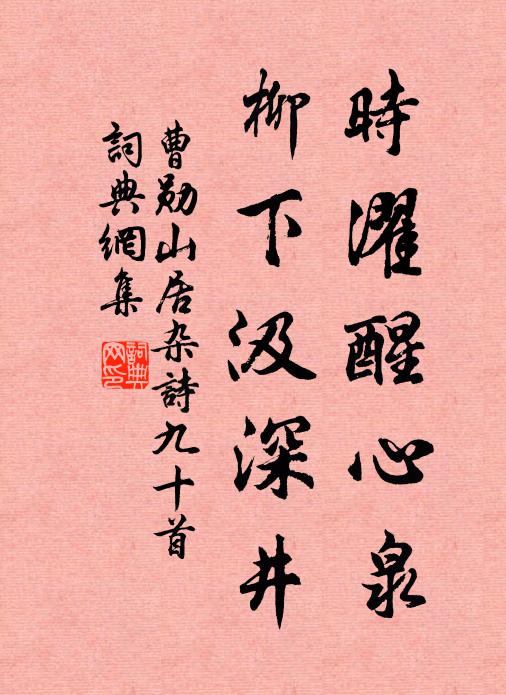 時濯醒心泉
柳下汲深井
曹勛山居杂詩九十首
詞典網集
詞典网印